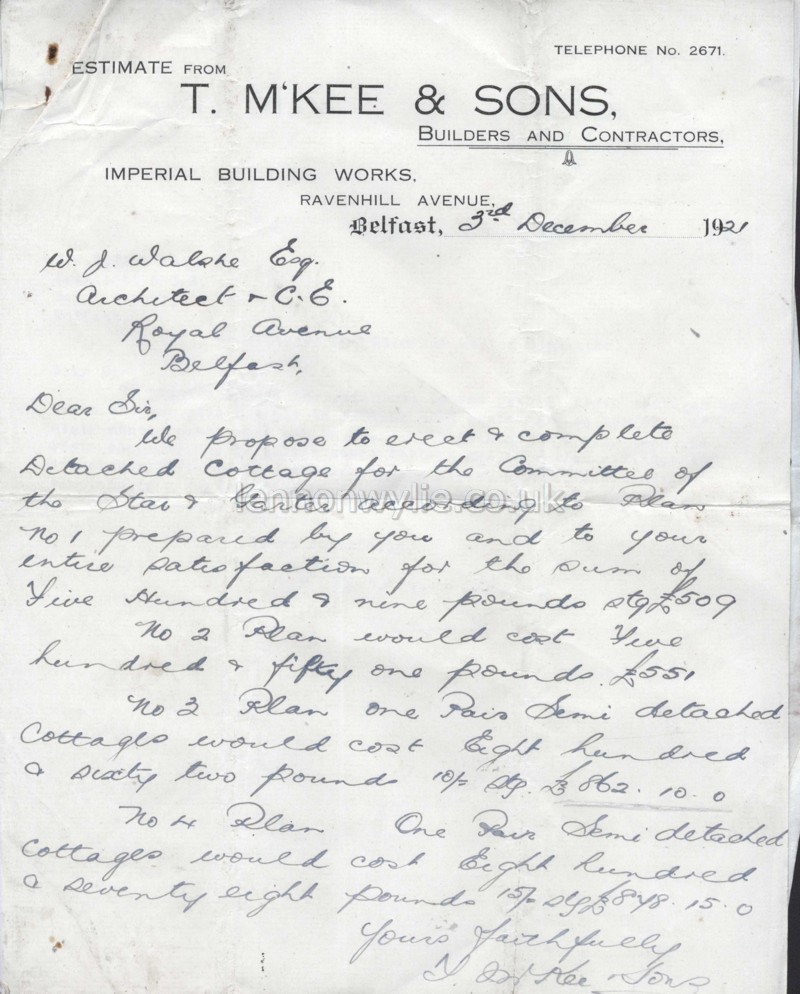 TELEPHONE No. 2671.
ESTIMATE FROM
T. M'KEE & SONS,
BUILDERS AND CONTRACTORS,
IMPERIAL BUILDING WORKS,
RAVENHILL AVENUE,
Belfast, 3rd December 1921
W. J. Walshe Esq.
Architect & C.E.
Royal Avenue
Belfast,
Dear Sir,
We propose to erect & complete
Detached Cottage for the Committee of
the Star & Garter according to Plan
lennonwylie.co.uk
No 1 prepared by you and to your
entire satisfaction for the sum of
Five Hundred & nine pounds stg £509
No 2 Plan would cost Five
hundred & fifty one pounds £551
No 3 Plan one Pair Semi detached
Cottages would cost Eight hundred
& sixty two pounds 10/- stg. £862.10.0
No 4 Plan One Pair Semi detached
Cottages would cost Eight hundred
& seventy eight pounds 15/- stg £878.15.0
Yours faithfully
T. McKee & Sons